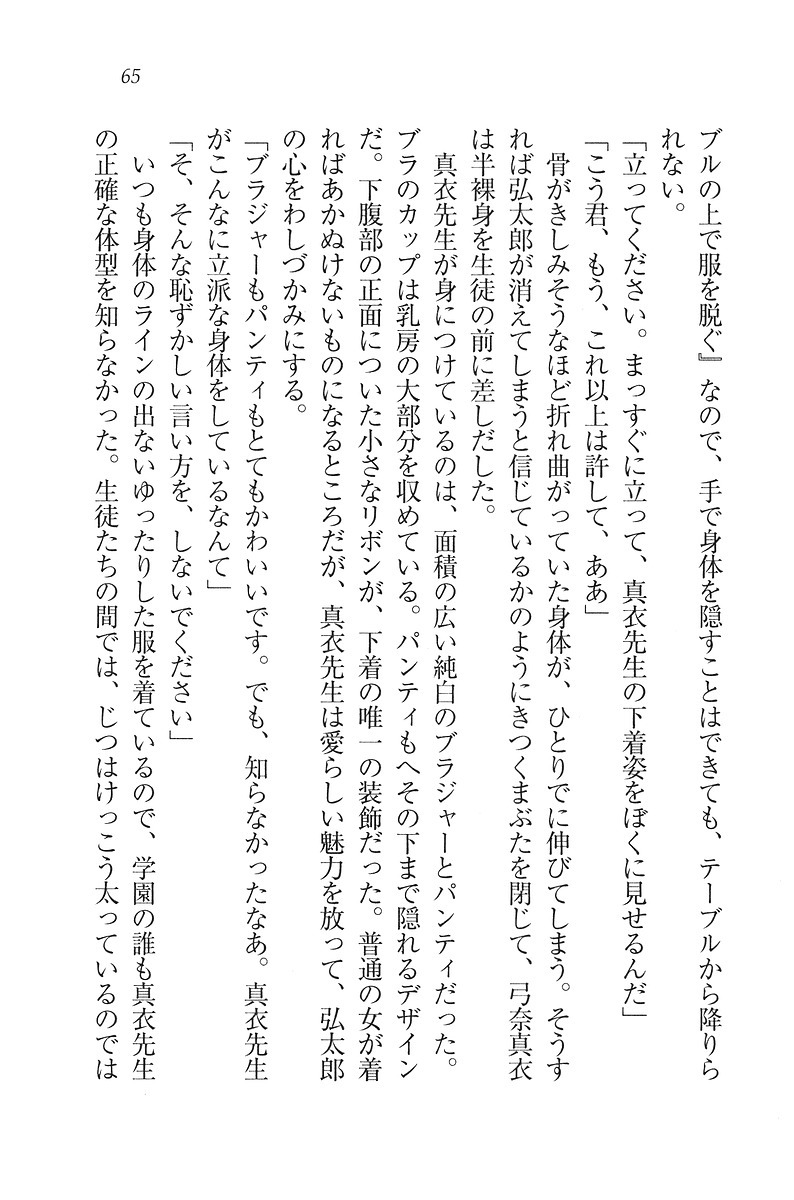 65
ブルの上で服を脱ぐ』なので、手で身体を隠すことはできても、テーブルから降りら
れない。
「立ってください。まっすぐに立って、真衣先生の下着姿をぼくに見せるんだ」
「こう君、もう、これ以上は許して、ああ」
　骨がきしみそうなほど折れ曲がっていた身体が、ひとりでに伸びてしまう。そうす
れば弘太郎が消えてしまうと信じているかのようにきつくまぶたを閉じて、弓奈真衣
は半裸身を生徒の前に差しだした。
　真衣先生が身につけているのは、面積の広い純白のブラジャーとパンティだった。
ブラのカップは乳房の大部分を収めている。パンティもへその下まで隠れるデザイン
だ。下腹部の正面についた小さなリボンが、下着の唯一の装飾だった。普通の女が着
ればあかぬけないものになるところだが、真衣先生は愛らしい魅力を放って、弘太郎
の心をわしづかみにする。
「ブラジャーもパンティもとてもかわいいです。でも、知らなかったなあ。真衣先生
がこんなに立派な身体をしているなんて」
「そ、そんな恥ずかしい言い方を、しないでください」
　いつも身体のラインの出ないゆったりした服を着ているので、学園の誰も真衣先生
の正確な体型を知らなかった。生徒たちの間では、じつはけっこう太っているのでは